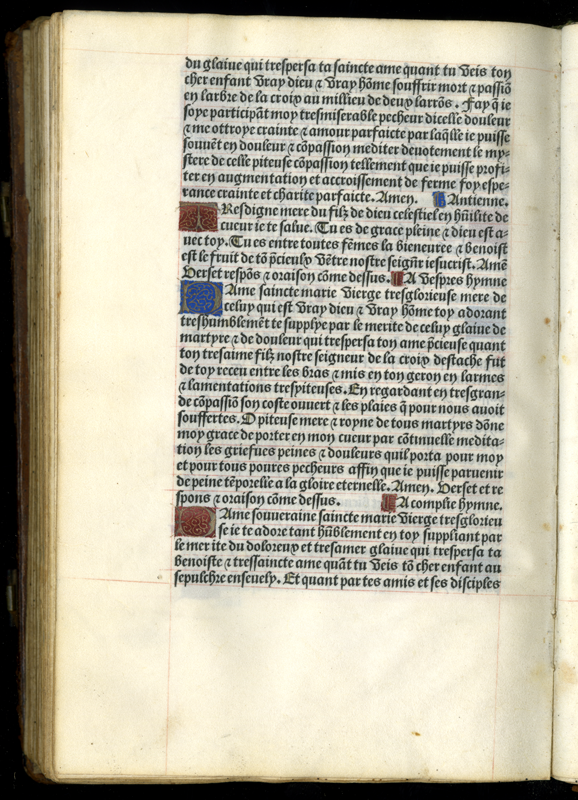 du glaiue qui trespersa ta saincte ame quant tu veis ton
cher enfant vray dieu ⁊ vray hōme souffrir mort ⁊ passiō
en larbre de la croix au millieu de deux larrōs. Fay q̄ ie
soye participāt moy tresmiserable pecheur dicelle douleur
⁊ me ottroye crainte ⁊ amour parfaicte par laq̄lle ie puisse
souuēt en douleur ⁊ cōpassion mediter deuotement le my-
stere de celle piteuse cōpassion tellement que ie puisse profi-
ter en augmentation et accroissement de ferme foy espe-
rance crainte et charite parfaicte. Amen. Antienne.
Tresdigne mere du filz de dieu celestiel en hūilite de
cueur ie te salue. Tu es de grace pleine ⁊ dieu est a-
uec toy. Tu es entre toutes fēmes la bieneuree ⁊ benoist
est le fruit de tō p̄cieulx vētre nostre seignr̄ iesucrist. Amē
Verset respōs ⁊ oraison cōme dessus. A vespres hymne
Dame saincte marie vierge tresglorieuse mere de
celuy qui est vray dieu ⁊ vray hōme toy adorant
treshumblemēt te supplye par le merite de celuy glaiue de
martyre ⁊ de douleur qui trespersa ton ame p̄cieuse quant
ton tresaime filz nostre seigneur de la croix destache fut
de toy receu entre les bras ⁊ mis en ton geron en larmes
⁊ lamentations trespiteuses. En regardant en tresgran-
de cōpassiō son coste ouuert ⁊ les plaies q̄ pour nous auoit
souffertes. O piteuse mere ⁊ royne de tous martyrs dōne
moy grace de porter en mon cueur par cōtinuelle medita-
tion les griefues peines ⁊ douleurs quil porta pour moy
et pour tous poures pecheurs affin que ie puisse paruenir
de peine tēporelle a la gloire eternelle. Amen. Verset et re
spons ⁊ oraison cōme dessus. A complie hymne.
Dame souueraine saincte marie vierge tresglorieu
se ie te adore tant hūblement en toy suppliant par
le merite du doloreux et tresamer glaiue qui trespersa ta
benoiste ⁊ tressaincte ame quāt tu veis tō cher enfant au
sepulchre enseuely. Et quant par tes amis et ses disciples